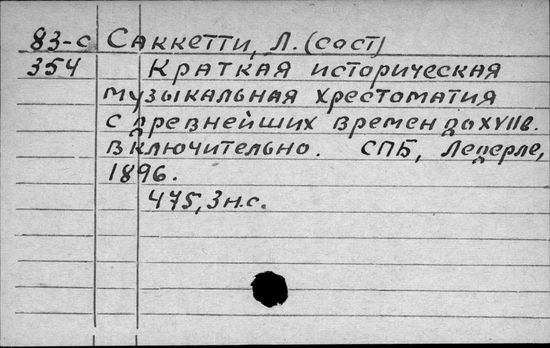 83-с Саккетти, Л. (сост)
354 Краткая историческая
музыкальная хрестоматия
с древнейших времен до XVII в.
включительно. СПБ, Ледерле,
1896.
475, 3 н.с.